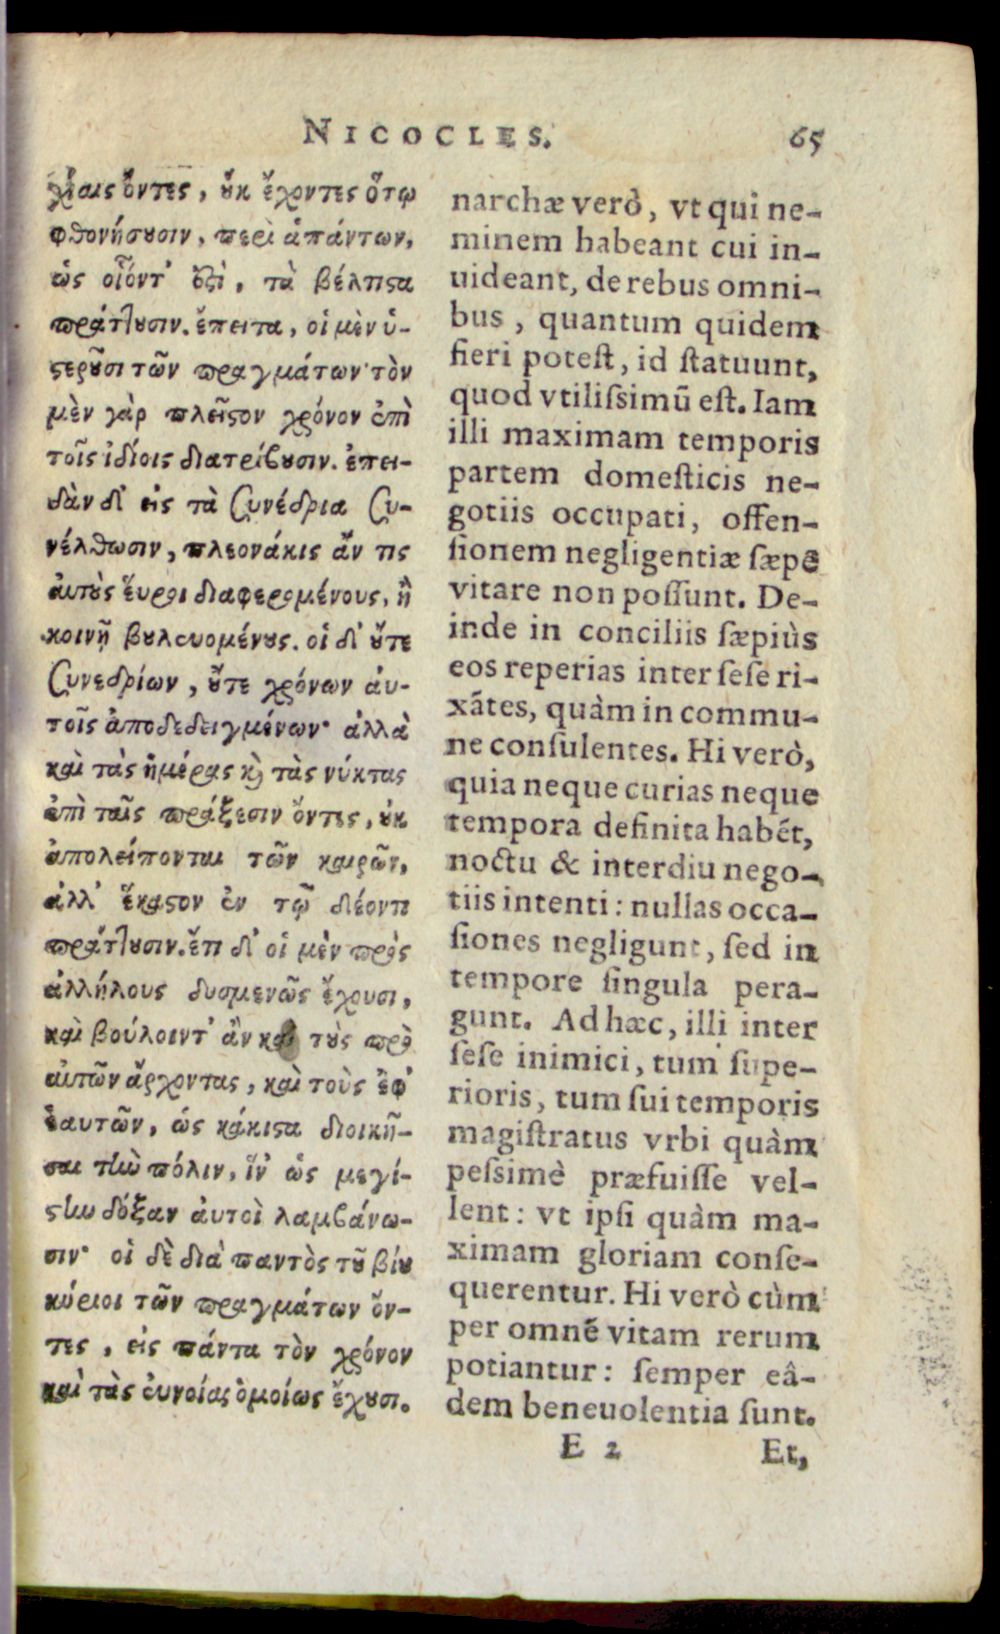 NICOCLES. 65
χίαις ὄντες, οὐκ ἔχοντες ὅτῳ
φθονήσουσιν, περὶ ἁπάντων,
ὡς οἷόντ' ἐστὶ, τὰ βέλτιστα
πράττουσιν. ἔπειτα, οἱ μὲν ὑ-
στεροῦσι τῶν πραγμάτων· τὸν
μὲν γὰρ πλεῖστον χρόνον ἐπὶ
τοῖς ἰδίοις διατρίβουσιν. ἐπει-
δὰν δ' εἰς τὰ συνέδρια συ-
νέλθωσιν, πλεονάκις ἄν τις
αὐτοὺς εὕροι διαφερομένους, ἢ
κοινῇ βουλευομένους. οἱ δ' οὔτε
συνεδρίων, οὔτε χρόνων αὐ-
τοῖς ἀποδεδειγμένων· ἀλλὰ
καὶ τὰς ἡμέρας καὶ τὰς νύκτας
ἐπὶ ταῖς πράξεσιν ὄντες, οὐκ
ἀπολείπονται τῶν καιρῶν,
ἀλλ' ἕκαστον ἐν τῷ δέοντι
πράττουσιν. ἔτι δ' οἱ μὲν πρὸς
ἀλλήλους δυσμενῶς ἔχουσι,
καὶ βούλοιντ' ἂν καὶ τοὺς πρὸ
αὐτῶν ἄρχοντας, καὶ τοὺς ἐφ'
ἑαυτῶν, ὡς κάκιστα διοικῆ-
σαι τὴν πόλιν, ἵν' ὡς μεγί-
στην δόξαν αὐτοὶ λαμβάνω-
σιν· οἱ δὲ διὰ παντὸς τοῦ βίου
κύριοι τῶν πραγμάτων ὄν-
τες, εἰς πάντα τὸν χρόνον
καὶ τὰς εὐνοίας ὁμοίως ἔχουσι.
narchæ verò, vt qui ne-
minem habeant cui in-
uideant, de rebus omni-
bus, quantum quidem
fieri potest, id statuunt,
quod vtilissimū est. Iam
illi maximam temporis
partem domesticis ne-
gotiis occupati, offen-
sionem negligentiæ sæpe
vitare non possunt. De-
inde in conciliis sæpiùs
eos reperias inter sese ri-
xātes, quàm in commu-
ne consulentes. Hi verò,
quia neque curias neque
tempora definita habēt,
noctu & interdiu nego-
tiis intenti: nullas occa-
siones negligunt, sed in
tempore singula pera-
gunt. Ad hæc, illi inter
sese inimici, tum supe-
rioris, tum sui temporis
magistratus vrbi quàm
pessimè præfuisse vel-
lent: vt ipsi quàm ma-
ximam gloriam conse-
querentur. Hi verò cùm
per omnē vitam rerum
potiantur: semper eâ-
dem beneuolentia sunt.
E 2 Et,